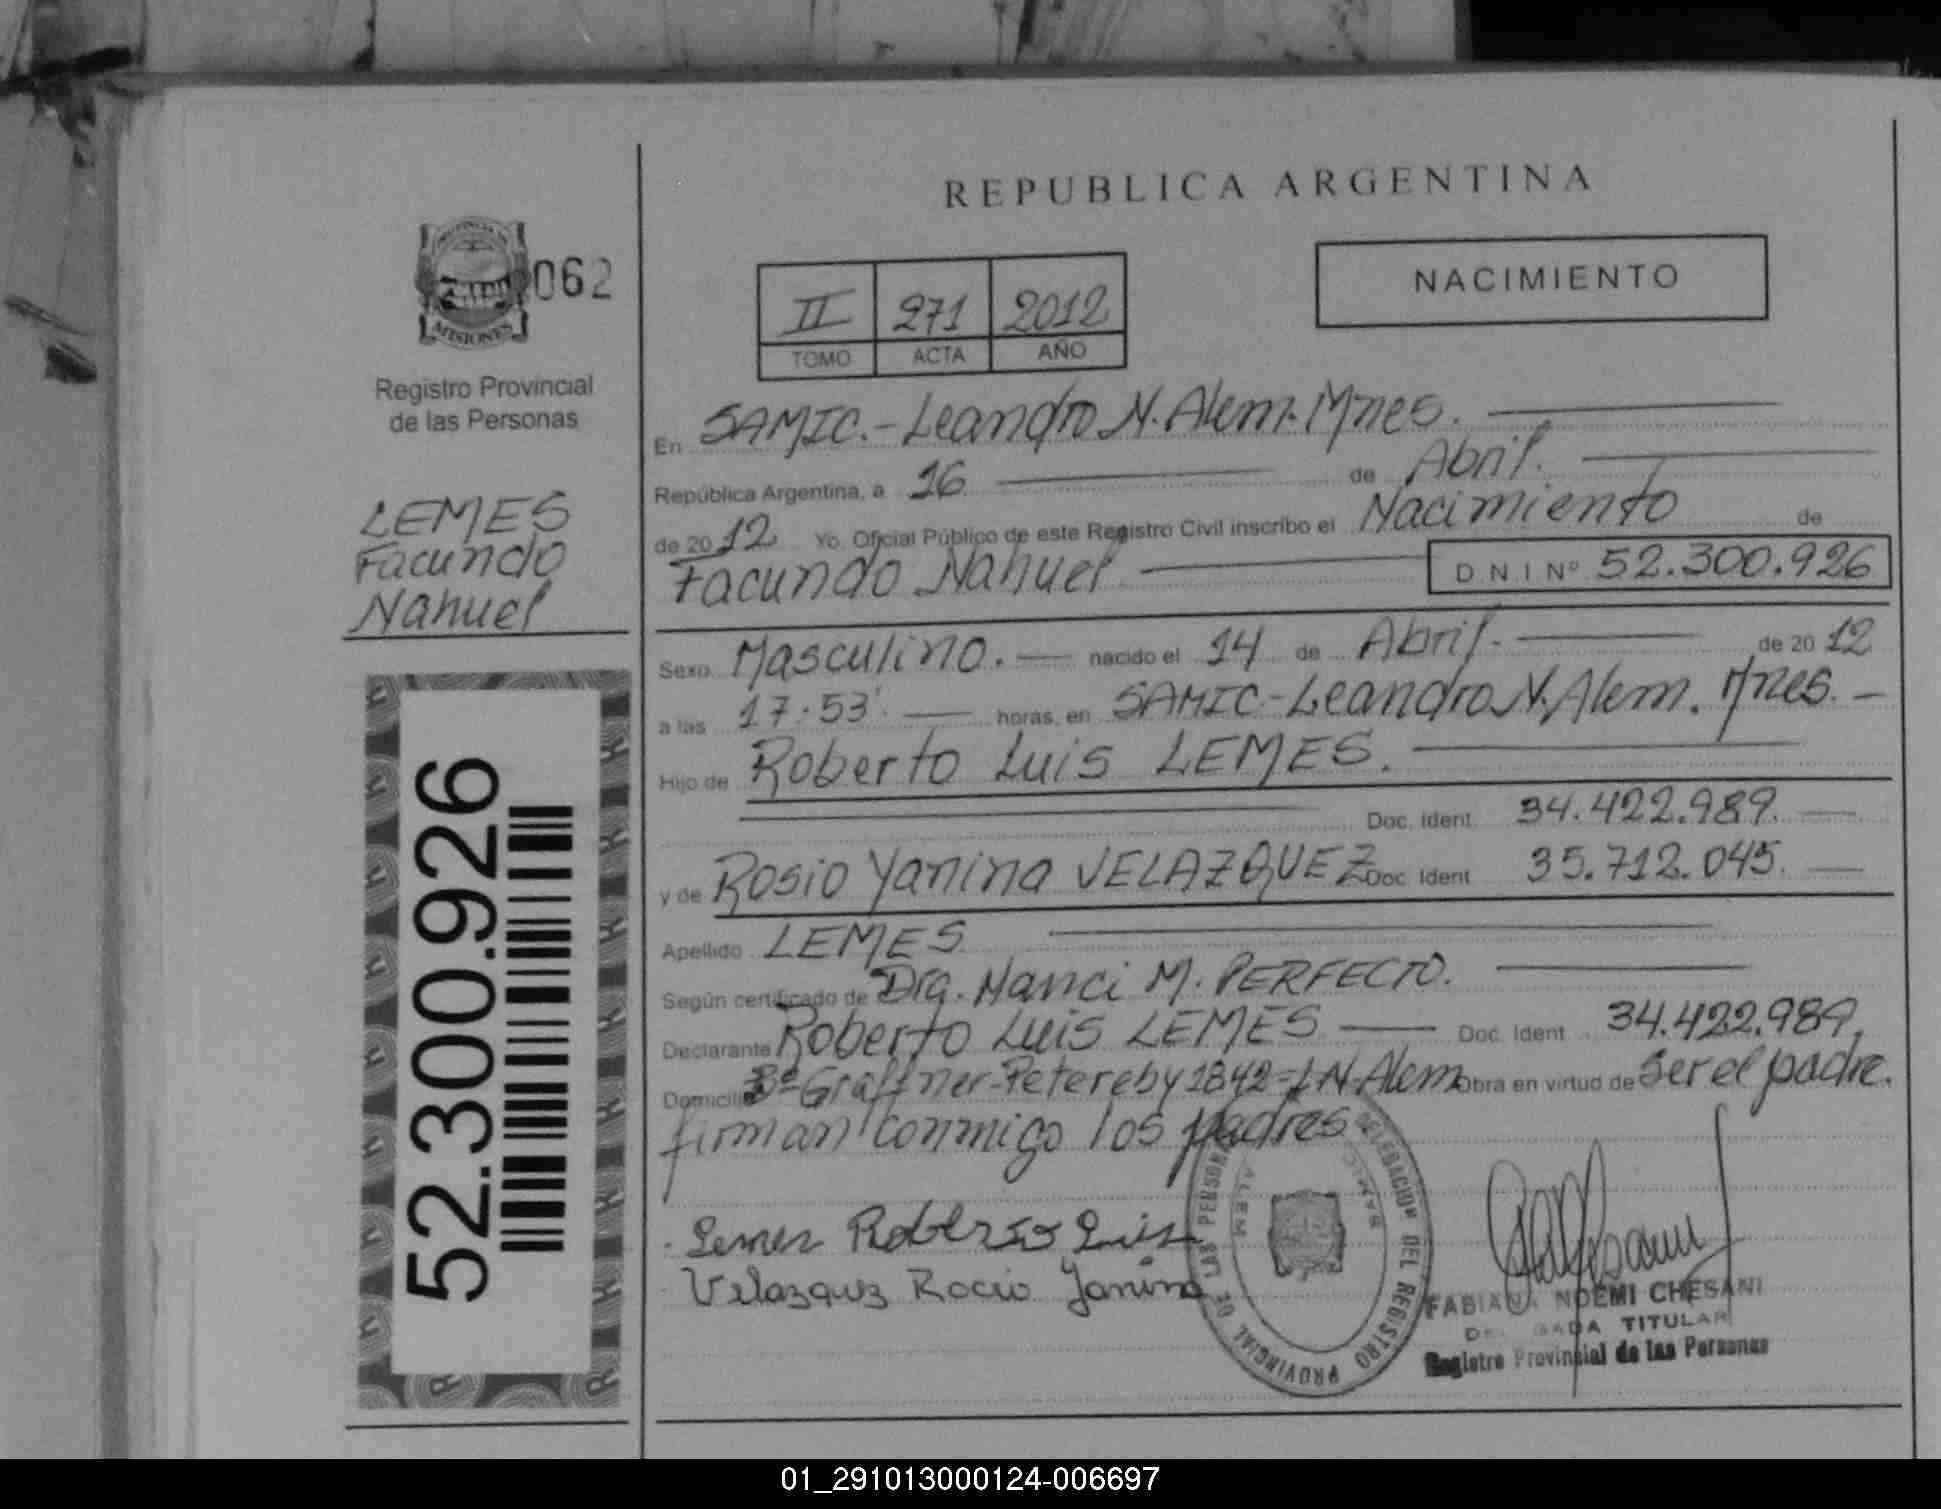 REPUBLICA ARGENTINA
062
MISIONES
Registro Provincial
de las Personas
NACIMIENTO
II 271 2012
TOMO ACTA AÑO
LEMES
Facundo
Nahuel
52.300.926
En SAMIC.-Leandro N. Alem. Mnes.
República Argentina, a 16 de Abril.
de 2012 Yo. Oficial Público de este Registro Civil inscribo el Nacimiento de
Facundo Nahuel D.N.I Nº 52.300.926
Sexo Masculino. nacido el 14 de Abril- de 2012
a las 17:53' horas, en SAMIC-Leandro N. Alem. Mnes.-
Hijo de Roberto Luis LEMES.
Doc. Ident. 34.422.989.
y de Rosio Yanina VELAZQUEZ Doc Ident 35.712.045.
Apellido LEMES
Según certificado de Dra. Nanci M. PERFECTO.
Declarante Roberto Luis LEMES Doc. Ident 34.422.989.
Domicilio Bº Graffner-Petereby 1842-L N. Alem Obra en virtud de ser el padre.
firman conmigo los padres
Lemes Roberto Luis
Velazquez Rocio Janina
DELEGACION DEL REGISTRO PROVINCIAL DE LAS PERSONAS
SAMIC ALEM
FABIANA NOEMI CHESANI
TITULAR
Registro Provincial de las Personas
01_291013000124-006697